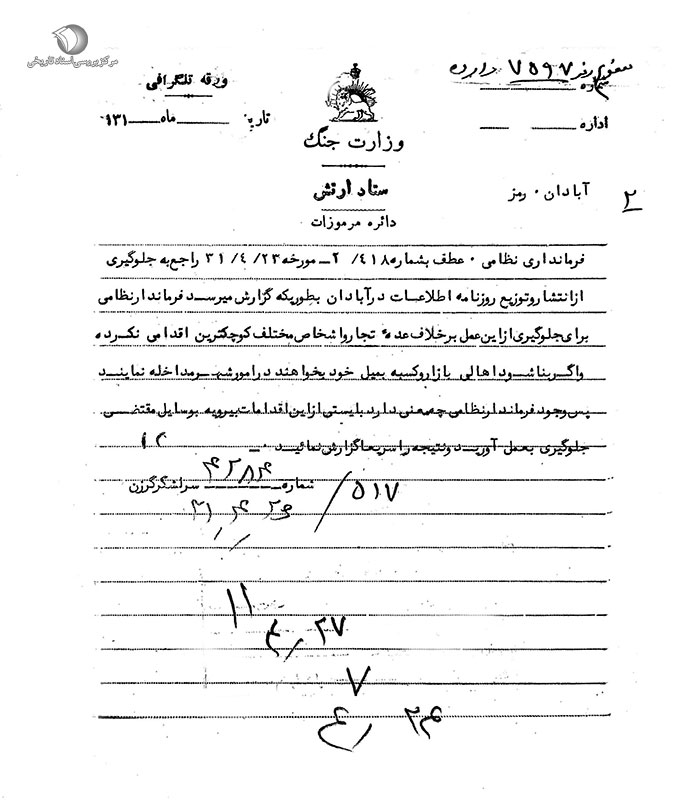 مرکز بررسی اسناد تاریخی
ورقه تلگرافی
تاریخ ماه ۱۳۱
وزارت جنگ
ستاد ارتش
دائره مرموزات
رمز ۷۵۹۷ دارده
شماره
اداره
آبادان ۰ رمز
۲
فرمانداری نظامی ۰ عطف بشماره ۴۱۸ /۲ ــ مورخه ۲۳/ ۴/ ۳۱ راجع به جلوگیری
از انتشار و توزیع روزنامه اطلاعات در آبادان بطوریکه گزارش میرسد فرماندار نظامی
برای جلوگیری از این عمل بر خلاف عده تجار و اشخاص مختلف کوچکترین اقدامی نکرده
و اگر بنا شود اهالی بازار و کسبه بمیل خود بخواهند در امور شهر مداخله نمایند
پس وجود فرماندار نظامی چه معنی دارد بایستی از این اقدامات بیرویه بوسایل مقتضی
جلوگیری بعمل آورید و نتیجه را سریعا گزارش نمائید ۰ ــ
شماره سرلشگر گرزن
۵۱۷
۱۱
۲۷
۷